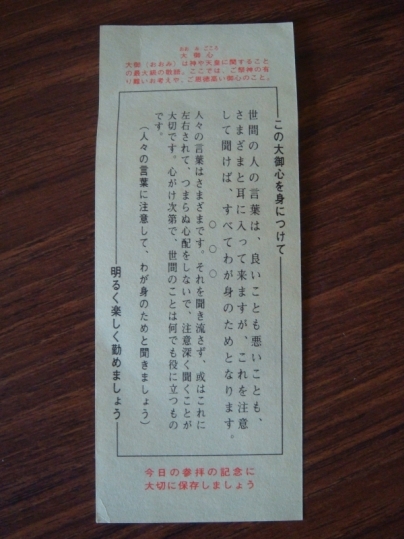 おお み こころ
大御心
大御（おおみ）は神や天皇に関すること
の最大級の敬語。ここでは、ご祭神の有
り難いお考えや、ご意徳高い御心のこと」
―この大御心を身につけて
世間の人の言葉は、良いことも悪いことも、
さまざまと耳に入って来ますが、これを注意
して聞けば、すべてわが身のためとなります。
○ ○ ○
人々の言葉はさまざまです。それを聞き流さず、或はこれに
左右されて、つまらぬ心配をしないで、注意深く聞くことが
大切です。心がけ次第で、世間のことは何でも役に立つもの
です。
（人々の言葉に注意して、わが身のためと聞きましょう）
明るく楽しく勤めましょう
今日の参拝の記念に
大切に保存しましょう